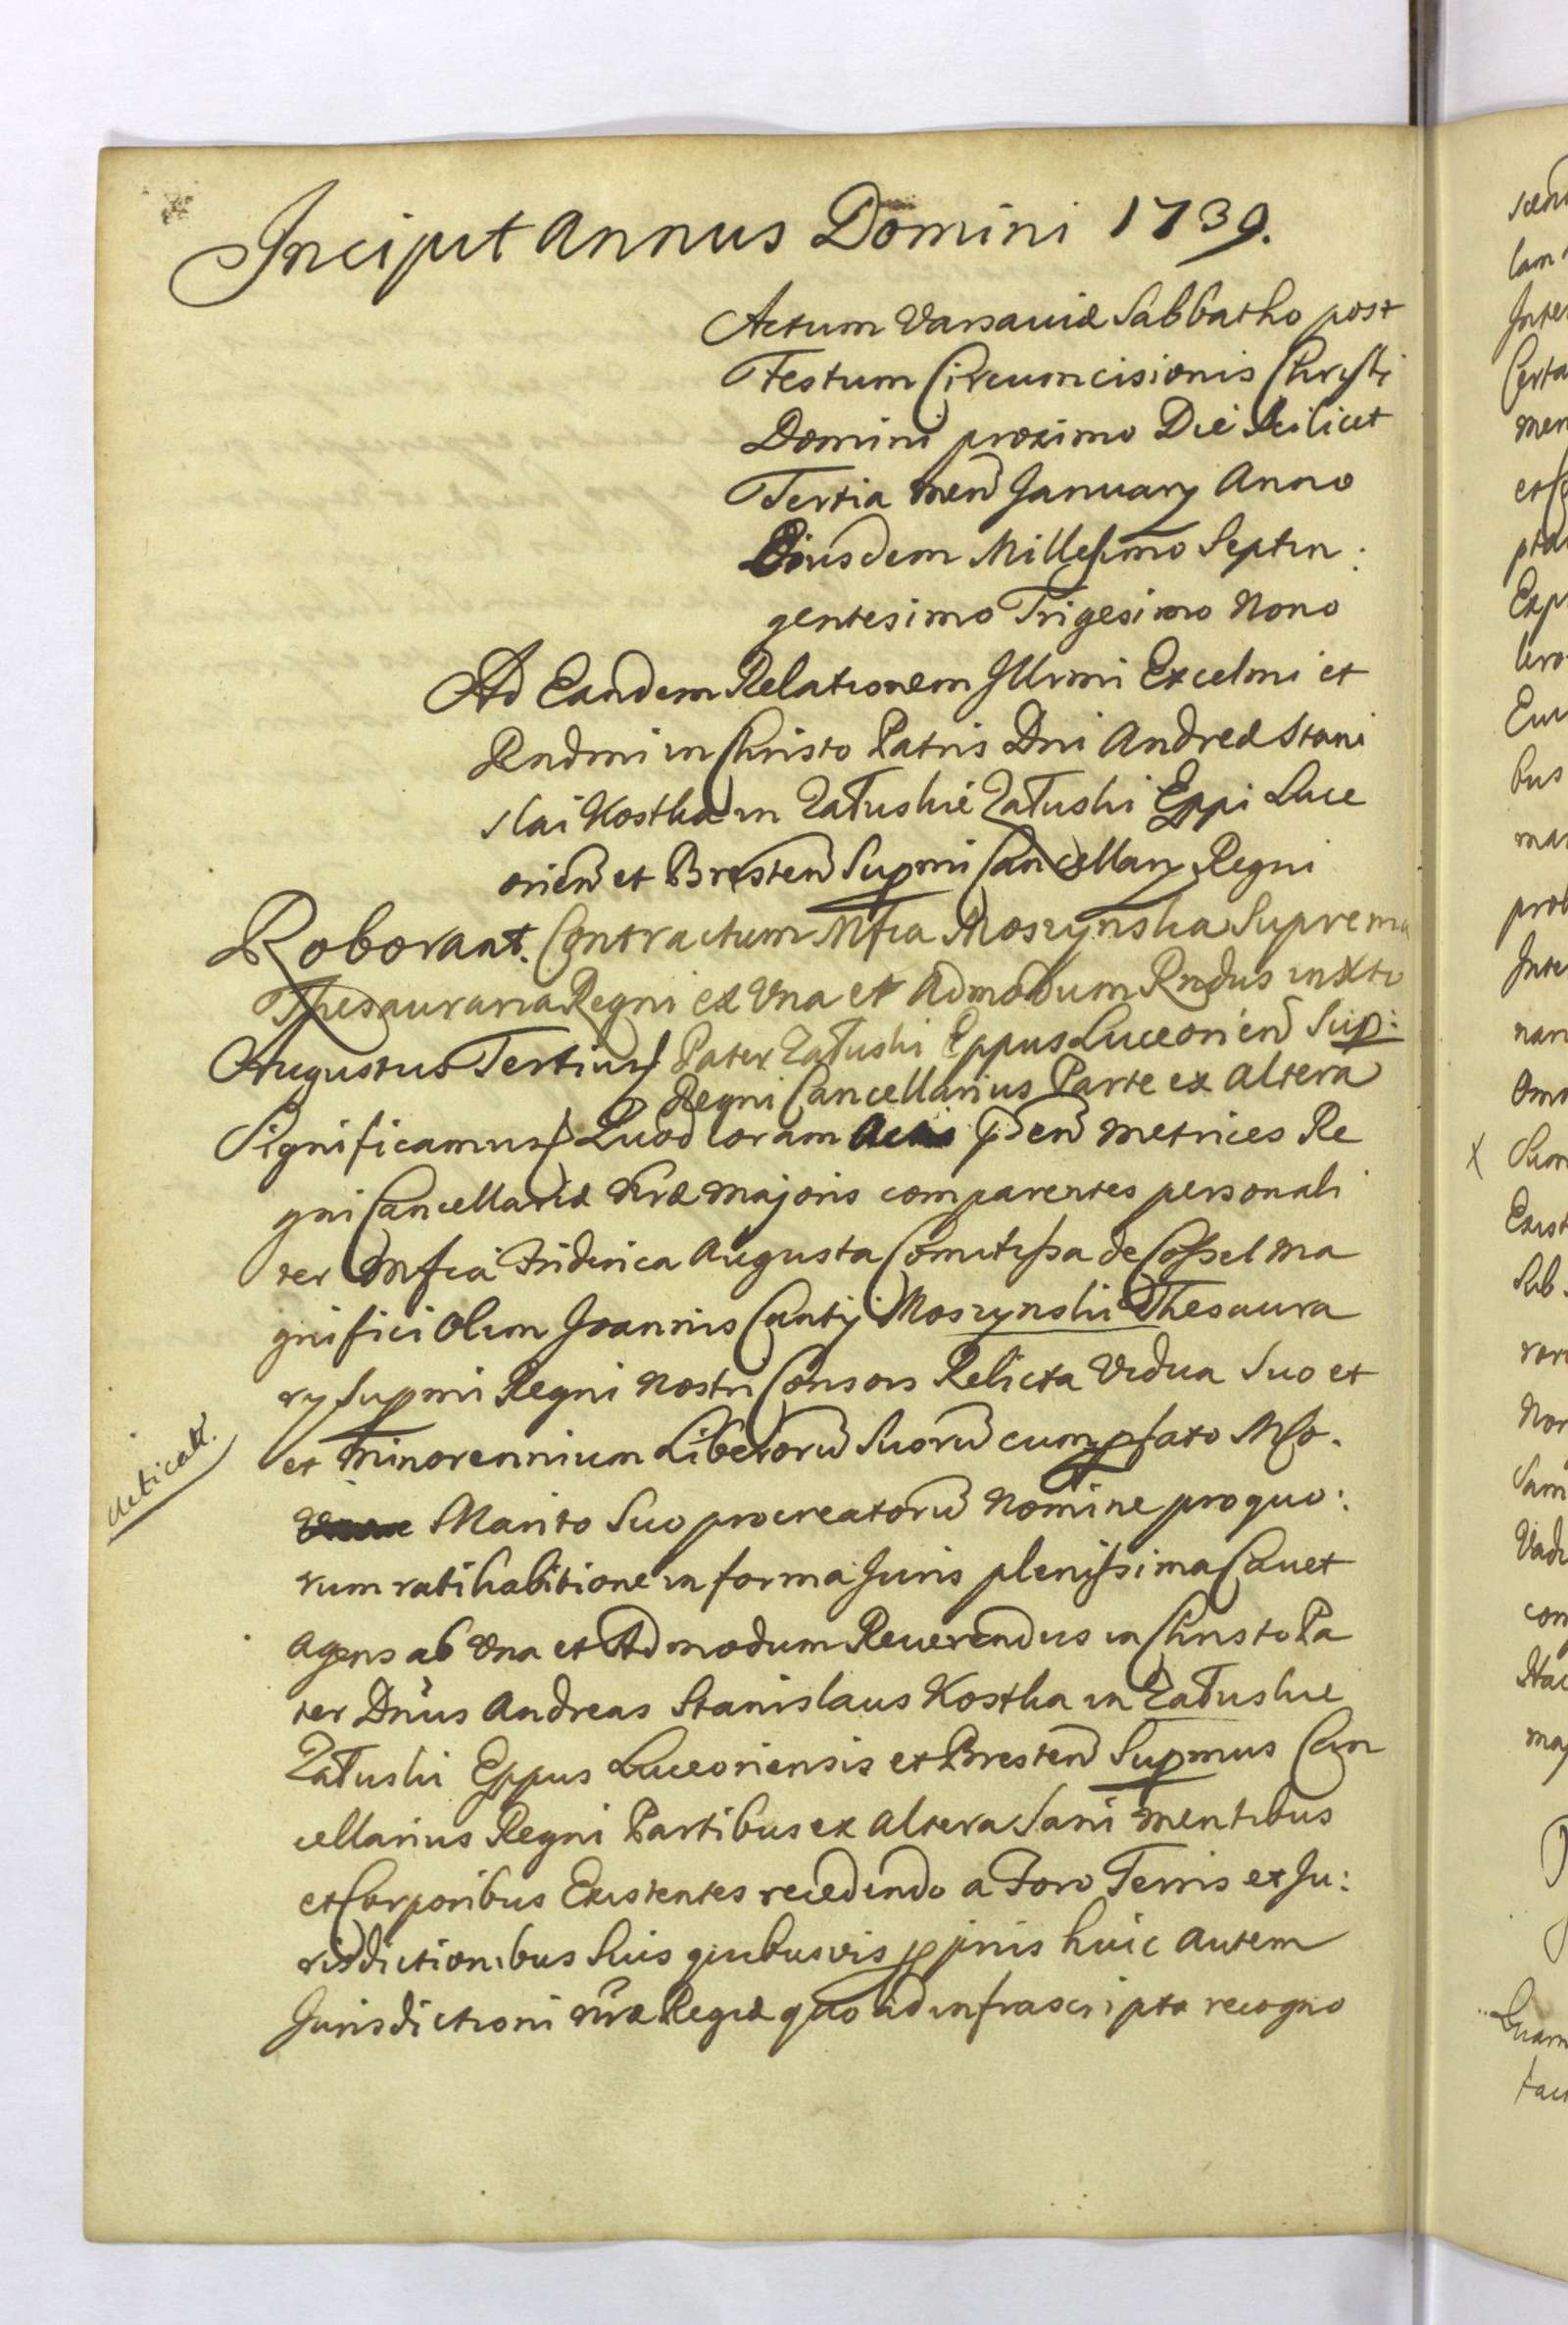 Incipit Annus Domini 1739.
Actum Varsaviæ Sabbatho post
Festum Circumcisionis Christi
Domini proximo Die Scilicet
Tertia men̄ January Anno
Eiusdem Millesimo Septin:
gentesimo Trigesimo Nono
Ad Eandem Relationem Illrmi Excelmi et
Rndmi in Christo Patris Dni Andreæ Stani
slai Kostka in Załuskie Załuski Eppi Luce
orien̄ et Bresten̄ Supmi Cancellary Regni
Roborant. Contractum Mfca Moszynska Suprema
Thesauraria Regni ex Una et Admodum Rndus in Xto
Augustus Tertius Pater Załuski Eppus Luceorien̄ Sup:
Regni Cancellarius Parte ex Altera
Significamus Quod coram p̄sen̄ Metrices Re
gni Cancellariæ Nræ Majoris comparentes personali
ter Mfca Friderica Augusta Comitissa de Cossel Ma
gnifici Olim Joannis Cantij Moszynski Thesaura
ry Supmi Regni Nostri Consors Relicta Vidua Suo et
et Minorennium Liberorū Suorū cum pfato Mfo.
Marito Suo procreatorū Nomine pro quo:
rum ratihabitione in forma Juris plenissima Cavet
agens ab Una et Admodum Reverendus in Christo Pa
ter Dnus Andreas Stanislaus Kostka in Załuskie
Załuski Eppus Luceoriensis et Bresten̄ Supmus Can
cellarius Regni Partibus ex Altera Sani Mentibus
et Corporibus Existentes recedendo a Foro Terris et Ju:
risdictionibus Suis quibusvis ppriis huic autem
Jurisdictioni Nræ Regiæ quo ad infrascripta recogno